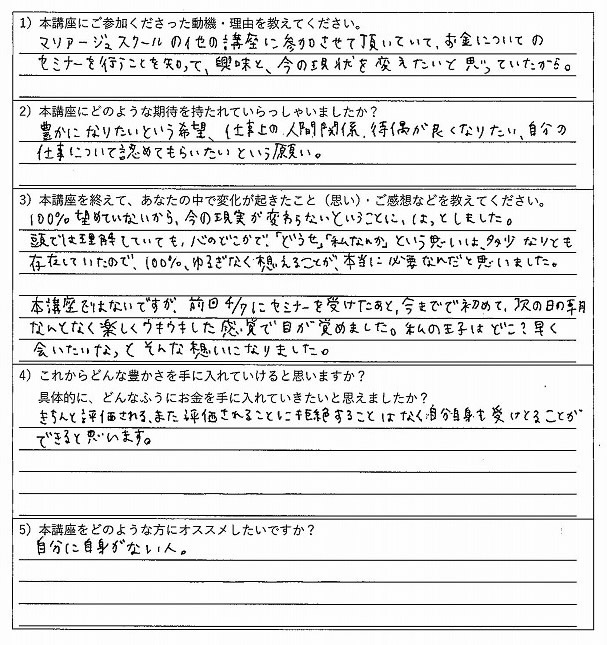 1）本講座にご参加くださった動機・理由を教えてください。
マリアージュスクールの他の講座に参加させて頂いていて、お金についての
セミナーを行うことを知って、興味と、今の現状を変えたいと思っていたから。
2）本講座にどのような期待を持たれていらっしゃいましたか？
豊かになりたいという希望、仕事上の人間関係、待偶が良くなりたい、自分の
仕事について認めてもらいたいという願い。
3）本講座を終えて、あなたの中で変化が起きたこと（思い）・ご感想などを教えてください。
100%望めていないから、今の現実が変わらないということに、はっとしました。
頭では理解していても、心のどこかで、「どうせ」「私なんか」という思いは、多少なりとも
存在していたので、100%、ゆるぎなく想えることが、本当に必要なんだと思いました。
本講座ではないですが、前回4/7にセミナーを受けたあと、今までで初めて、次の日の朝
なんとなく楽しくウキウキした感覚で目が覚めました。私の王子はどこ？早く
会いたいなっとそんな想いになりました。
4）これからどんな豊かさを手に入れていけると思いますか？
具体的に、どんなふうにお金を手に入れていきたいと思えましたか？
きちんと評価される、また評価されることに拒絶することはなく自分自身も受けとることが
できると思います。
5）本講座をどのような方にオススメしたいですか？
自分に自身がない人。